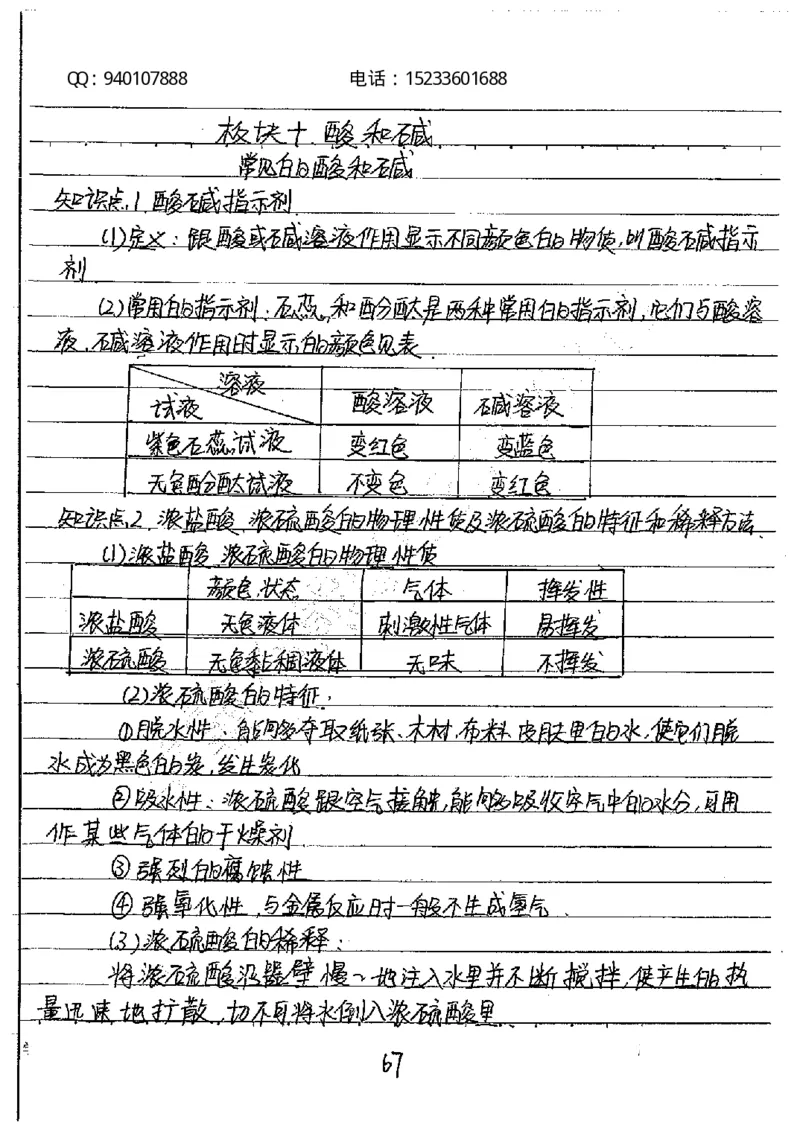 QQ：940107888 电话：15233601688
板块十.酸和碱
常见的酸和碱
知识点1.酸碱指示剂
(1)定义：跟酸或碱溶液作用显示不同颜色的物质,叫酸碱指示
剂
(2)常用的指示剂：石蕊和酚酞是两种常用的指示剂,它们与酸溶
液.碱溶液作用时显示的颜色见表
溶液
试液 酸溶液 碱溶液
紫色石蕊试液 变红色 变蓝色
无色酚酞试液 不变色 变红色
知识点2.浓盐酸.浓硫酸的物理性质及浓硫酸的特征和稀释方法
(1)浓盐酸 浓硫酸的物理性质
颜色.状态 气体 挥发性
浓盐酸 无色液体 刺激性气体 易挥发
浓硫酸 无色黏稠液体 无味 不挥发
(2)浓硫酸的特征：
①脱水性：能够夺取纸张、木材,布料.皮肤里的水,使它们脱
水成为黑色的炭,发生炭化
②吸水性：浓硫酸跟空气接触,能够吸收空气中的水分,可用
作某些气体的干燥剂
③强烈的腐蚀性
④强氧化性,与金属反应时一般不生成氢气.
(3)浓硫酸的稀释：
将浓硫酸沿器壁慢~地注入水里并不断搅拌,使产生的热
量迅速地扩散,切不可将水倒入浓硫酸里
67